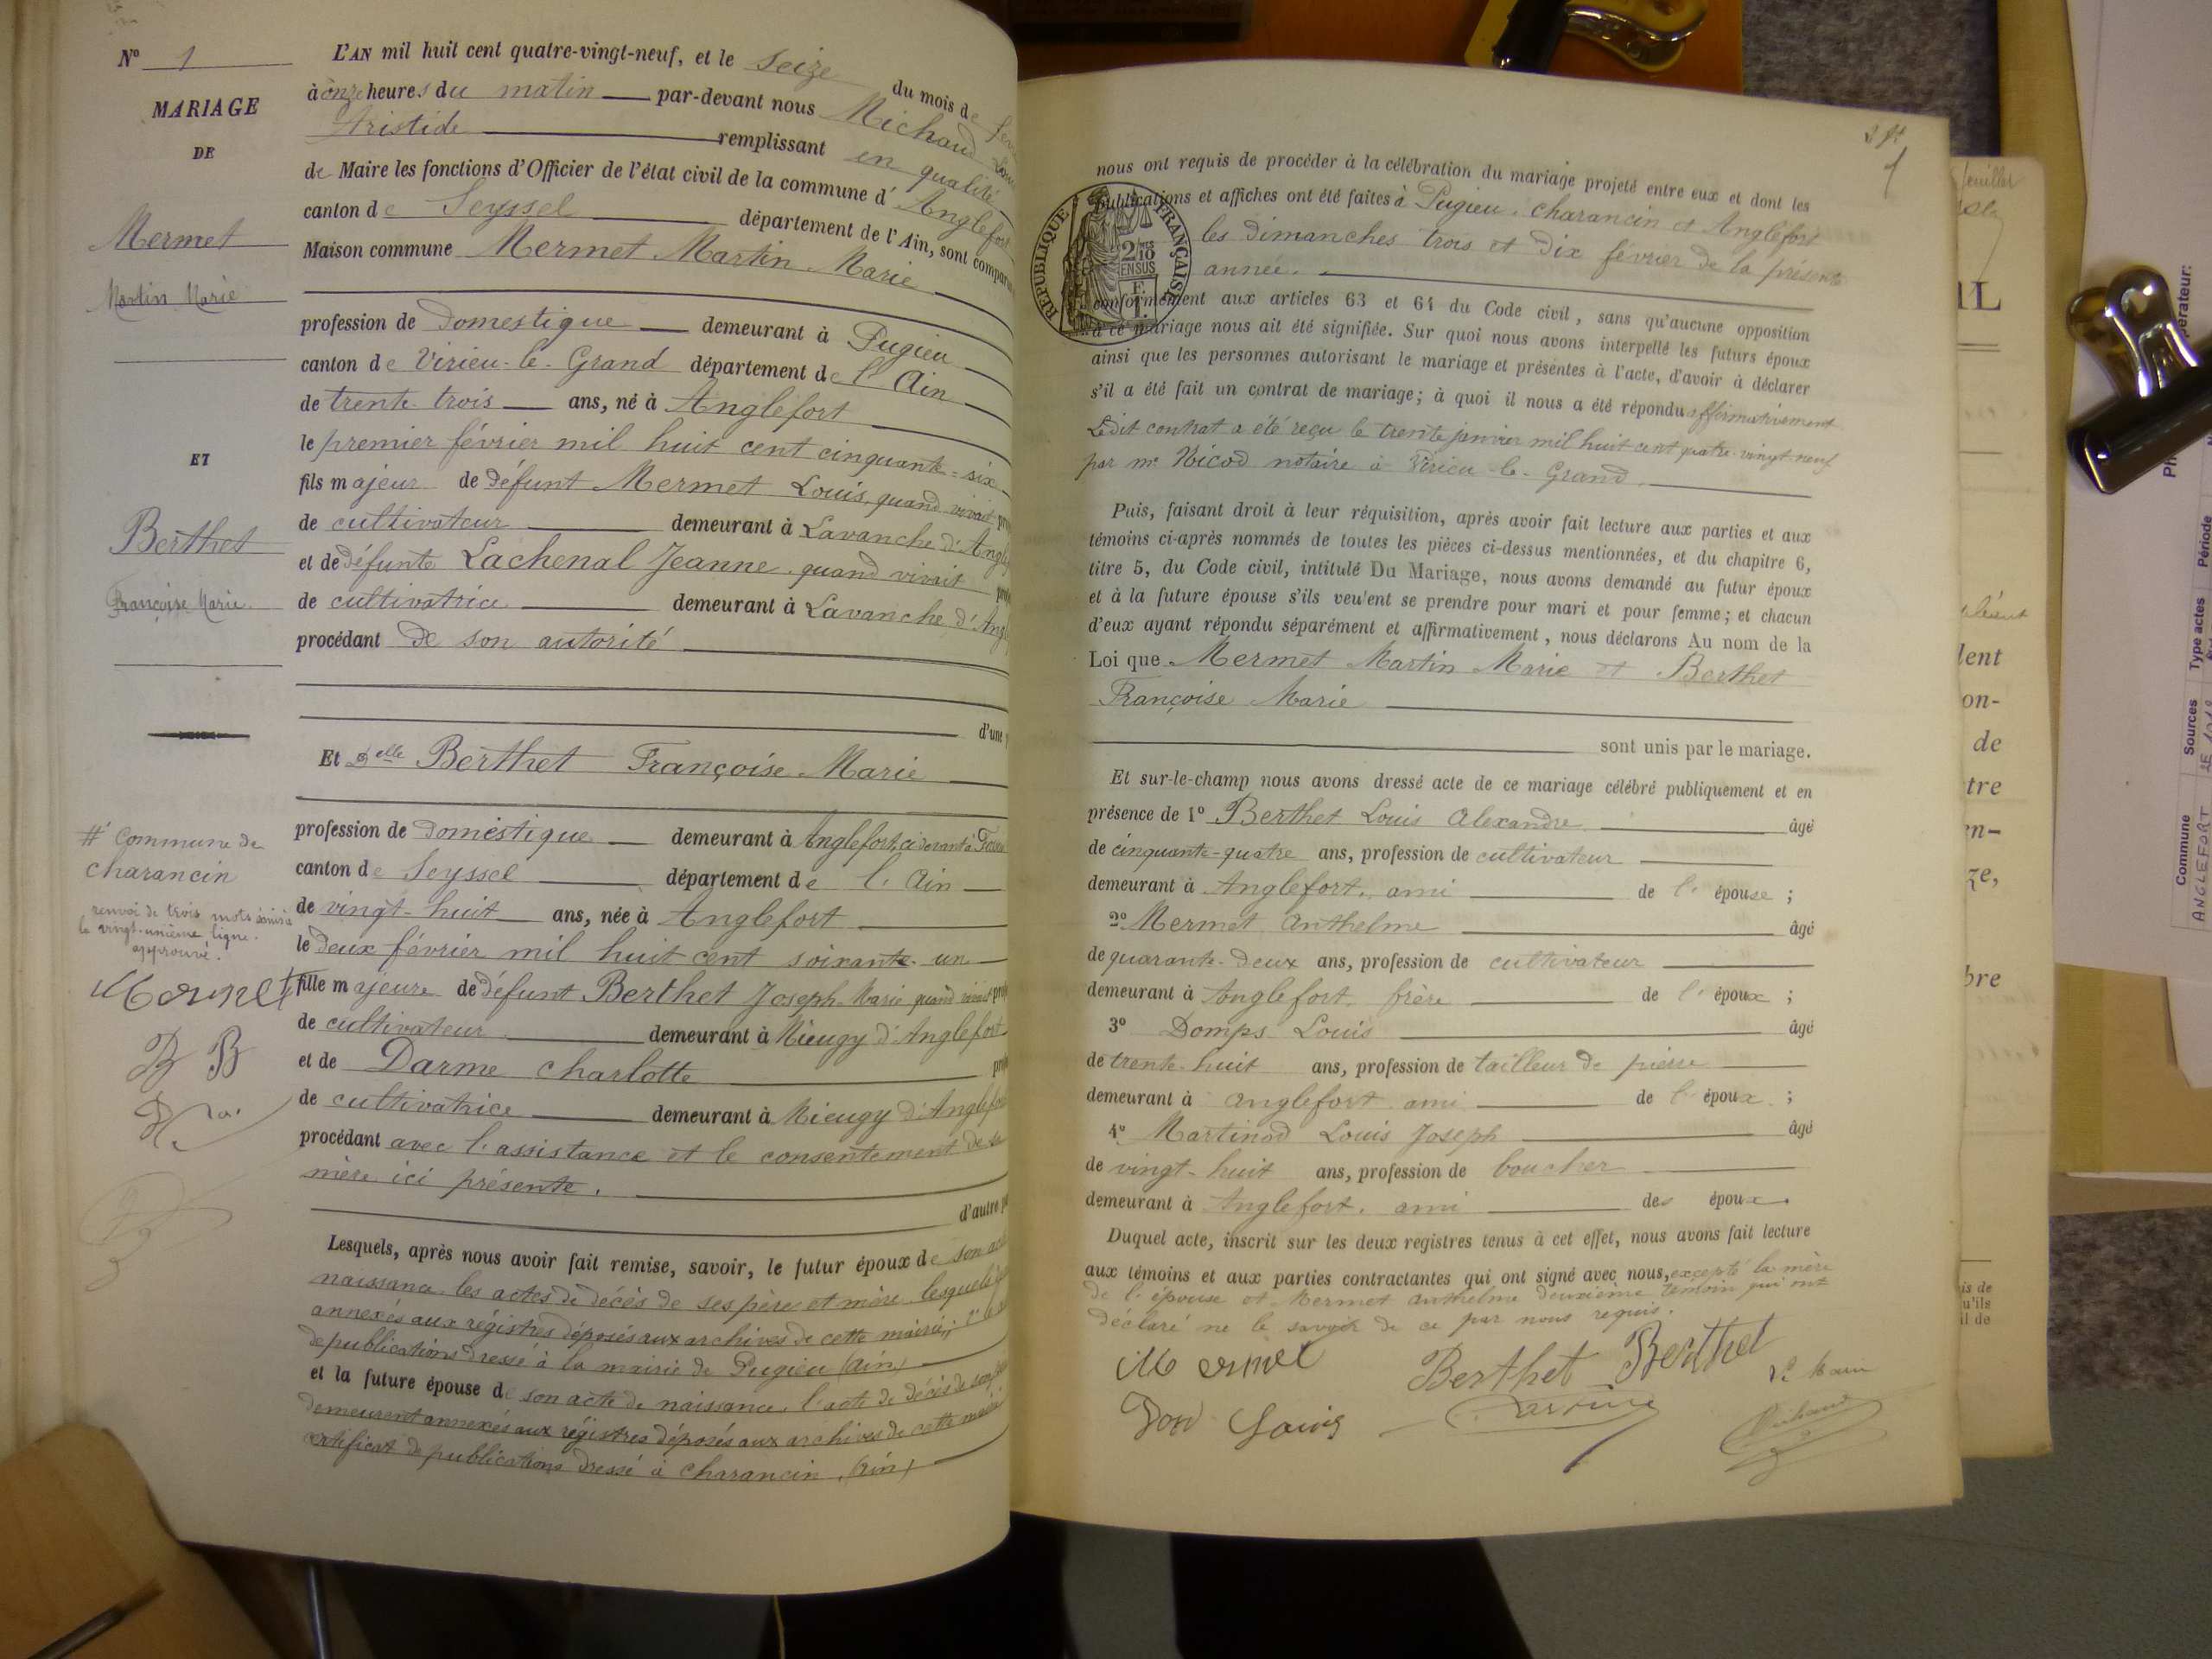 N° 1
MARIAGE
DE
Mermet
Martin Marie
ET
Berthet
Françoise Marie.
# Commune de
Charancin
renvoi de trois mots écrits à
la vingt-unième ligne.
approuvé.
Mermet
B B
L'AN mil huit cent quatre-vingt-neuf, et le seize du mois de
à onze heures du matin par-devant nous Michaud
Aristide remplissant en qualité
de Maire les fonctions d'Officier de l'état civil de la commune d'Anglefort
canton de Seyssel département de l'Ain, sont comparus
Maison commune Mermet Martin Marie
profession de Domestique demeurant à Pugieu
canton de Virieu-le-Grand département de l'Ain
de trente-trois ans, né à Anglefort
le premier février mil huit cent cinquante-six
fils majeur de défunt Mermet Louis, quand vivait
de cultivateur demeurant à Lavanche d'
et de défunte Lachenal Jeanne quand vivait
de cultivatrice demeurant à Lavanche d'
procédant de son autorité
d'une
Et Delle Berthet Françoise Marie
profession de Domestique demeurant à Anglefort, ci devant à
canton de Seyssel département de l'Ain
de vingt-huit ans, née à Anglefort
le deux février mil huit cent soixante-un
fille majeure de défunt Berthet Joseph-Marie quand vivait
de cultivateur demeurant à Mieugy d'Anglefort
et de Darme Charlotte
de cultivatrice demeurant à Mieugy d'Anglefort
procédant avec l'assistance et le consentement de sa
mère ici présente.
d'autre
Lesquels, après nous avoir fait remise, savoir, le futur époux de son
naissance, les actes de décès de ses père et mère, lesquels
annexés aux régistres déposés aux archives de cette mairie,
de publications dressé à la mairie de Pugieu (Ain)
et la future épouse de son acte de naissance, l'acte de décès de son
demeurent annexés aux régistres déposés aux archives de cette mairie
certificat de publications dressé à Charancin, (Ain)
1
nous ont requis de procéder à la célébration du mariage projeté entre eux et dont les
publications et affiches ont été faites à Pugieu, Charancin et Anglefort
les dimanches trois et dix février de la présente
année.
RÉPUBLIQUE FRANÇAISE
2/10
EN SUS
conformément aux articles 63 et 64 du Code civil, sans qu'aucune opposition
à ce mariage nous ait été signifiée. Sur quoi nous avons interpellé les futurs époux
ainsi que les personnes autorisant le mariage et présentes à l'acte, d'avoir à déclarer
s'il a été fait un contrat de mariage; à quoi il nous a été répondu affirmativement
Ledit contrat a été reçu le trente janvier mil huit cent quatre-vingt-neuf
par Me Nicod notaire à Virieu-le-Grand
Puis, faisant droit à leur réquisition, après avoir fait lecture aux parties et aux
témoins ci-après nommés de toutes les pièces ci-dessus mentionnées, et du chapitre 6,
titre 5, du Code civil, intitulé Du Mariage, nous avons demandé au futur époux
et à la future épouse s'ils veulent se prendre pour mari et pour femme; et chacun
d'eux ayant répondu séparément et affirmativement, nous déclarons Au nom de la
Loi que Mermet Martin Marie et Berthet
Françoise Marie
sont unis par le mariage.
Et sur-le-champ nous avons dressé acte de ce mariage célébré publiquement et en
présence de 1° Berthet Louis Alexandre âgé
de cinquante-quatre ans, profession de cultivateur
demeurant à Anglefort, ami de l'épouse;
2° Mermet Anthelme âgé
de quarante-deux ans, profession de cultivateur
demeurant à Anglefort, frère de l'époux;
3° Domps Louis âgé
de trente-huit ans, profession de tailleur de pierre
demeurant à Anglefort ami de l'époux;
4° Martinod Louis Joseph âgé
de vingt-huit ans, profession de boucher
demeurant à Anglefort, ami des époux.
Duquel acte, inscrit sur les deux registres tenus à cet effet, nous avons fait lecture
aux témoins et aux parties contractantes qui ont signé avec nous, excepté la mère
de l'épouse et Mermet Anthelme deuxième témoin qui ont
déclaré ne le savoir de ce par nous requis.
Mermet
Berthet Berthet
Louis
Michaud
Commune
Sources
Type actes
Période
ANGLEFORT